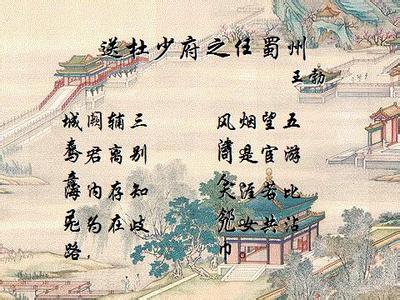 送杜少府之任蜀州
王勃
城阙辅三
君离别
海内存知
为在歧
路,
风烟望五
是宦游
天涯若比
女共沾
巾。